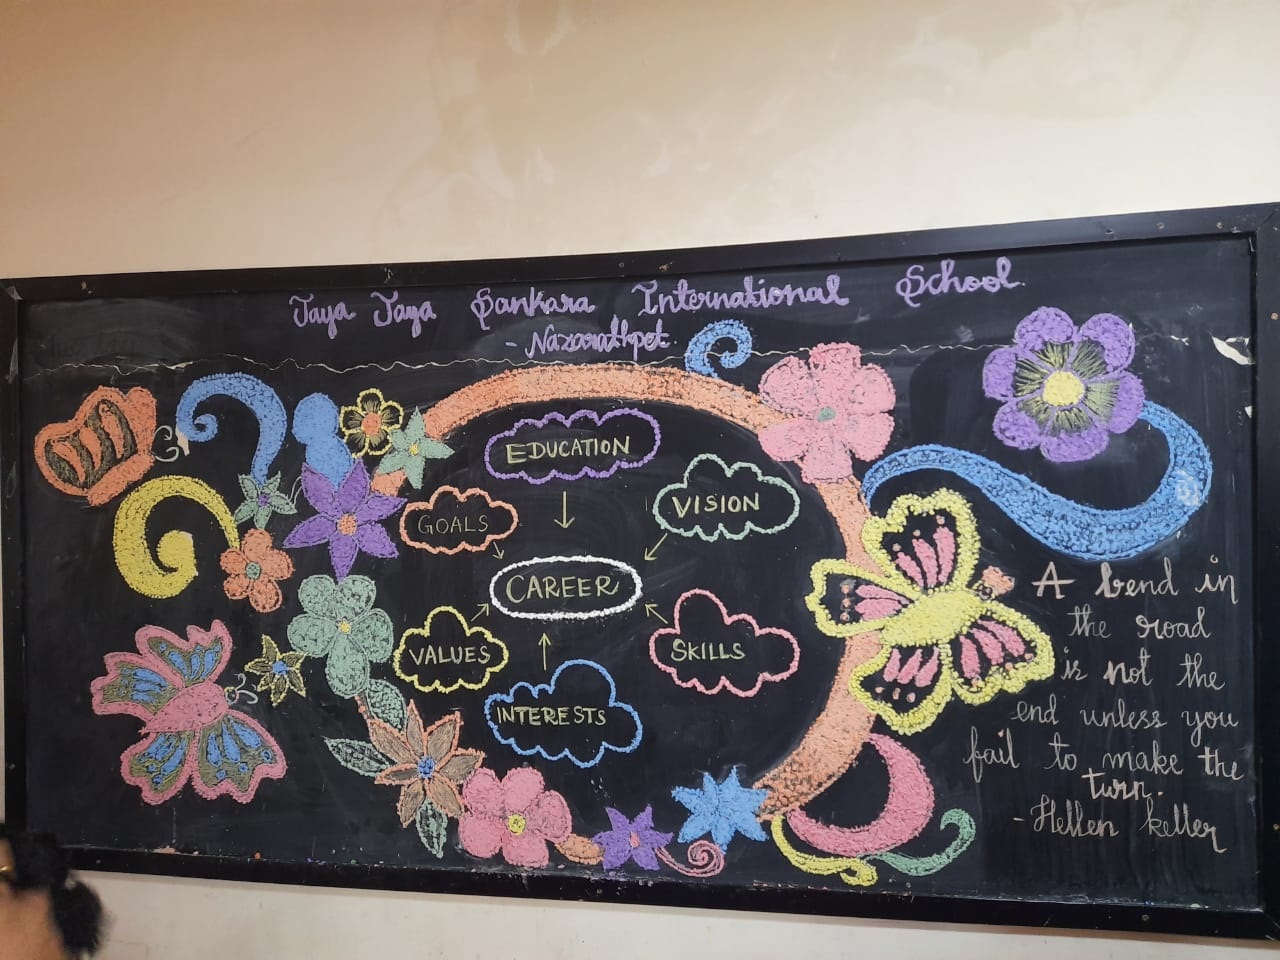 Jaya Jaya Sankara International School.
- Nazarathpet.
EDUCATION
GOALS
VISION
CAREER
VALUES
SKILLS
INTERESTS
A bend in
the road
is not the
end unless you
fail to make the
turn.
- Hellen keller